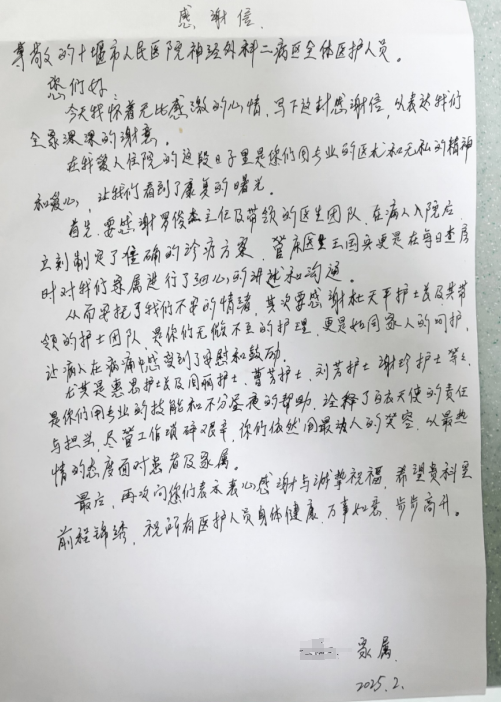 感谢信
尊敬的十堰市人民医院神经外科二病区全体医护人员。
您们好:
今天我怀着无比感激的心情、写下这封感谢信,以表达我们
全家深深的谢意。
在我爱人住院的这段日子里是你们用专业的医术和无私的精神
和爱心,让我们看到了康复的曙光。
首先,要感谢罗俊杰主任及带领的医生团队,在病人入院后
立刻制定了准确的诊疗方案,管床医生王国兵更是在每日查房
时对我们家属进行了细心的讲述和沟通
从而安抚了我们不安的情绪,其次要感谢杜天平护士长及其带
领的护士团队,是你们无微不至的护理,更是如同家人的呵护,
让病人在病痛中感受到了安慰和鼓励。
尤其是惠思护士长及闫丽护士,曹芳护士,刘芳护士谢珍护士等等
是你们用专业的技能和不分昼夜的帮助,诠释了白衣天使的责任
与担当,尽管工作琐碎艰辛,你们依然用最动人的笑容,以最热
情的态度面对患者及家属。
最后,再次向你们表衷心感谢与诚挚祝福,希望贵科室
前程锦绣,祝所有医护人员身体健康,万事如意,步步高升。
家属
2025.2.